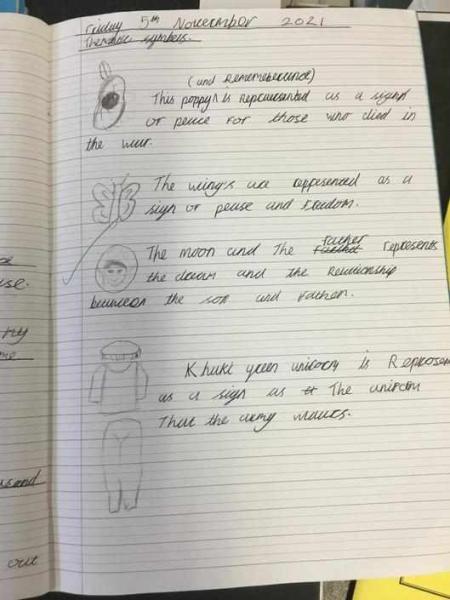 Friday 5th November 2021
Thematic symbols.
(and Rememberance)
This poppy is reprensented as a sign
of peace for those who died in
the war.
The wings are reppresented as a
sign of peuse and freedom.
father
The moon and The represents
the dream and the Relationship
between the son and Father.
Khaki green uniform is Represen
as a sign as The uniform
That the army wears.
se
use.
ny
me
usand
out